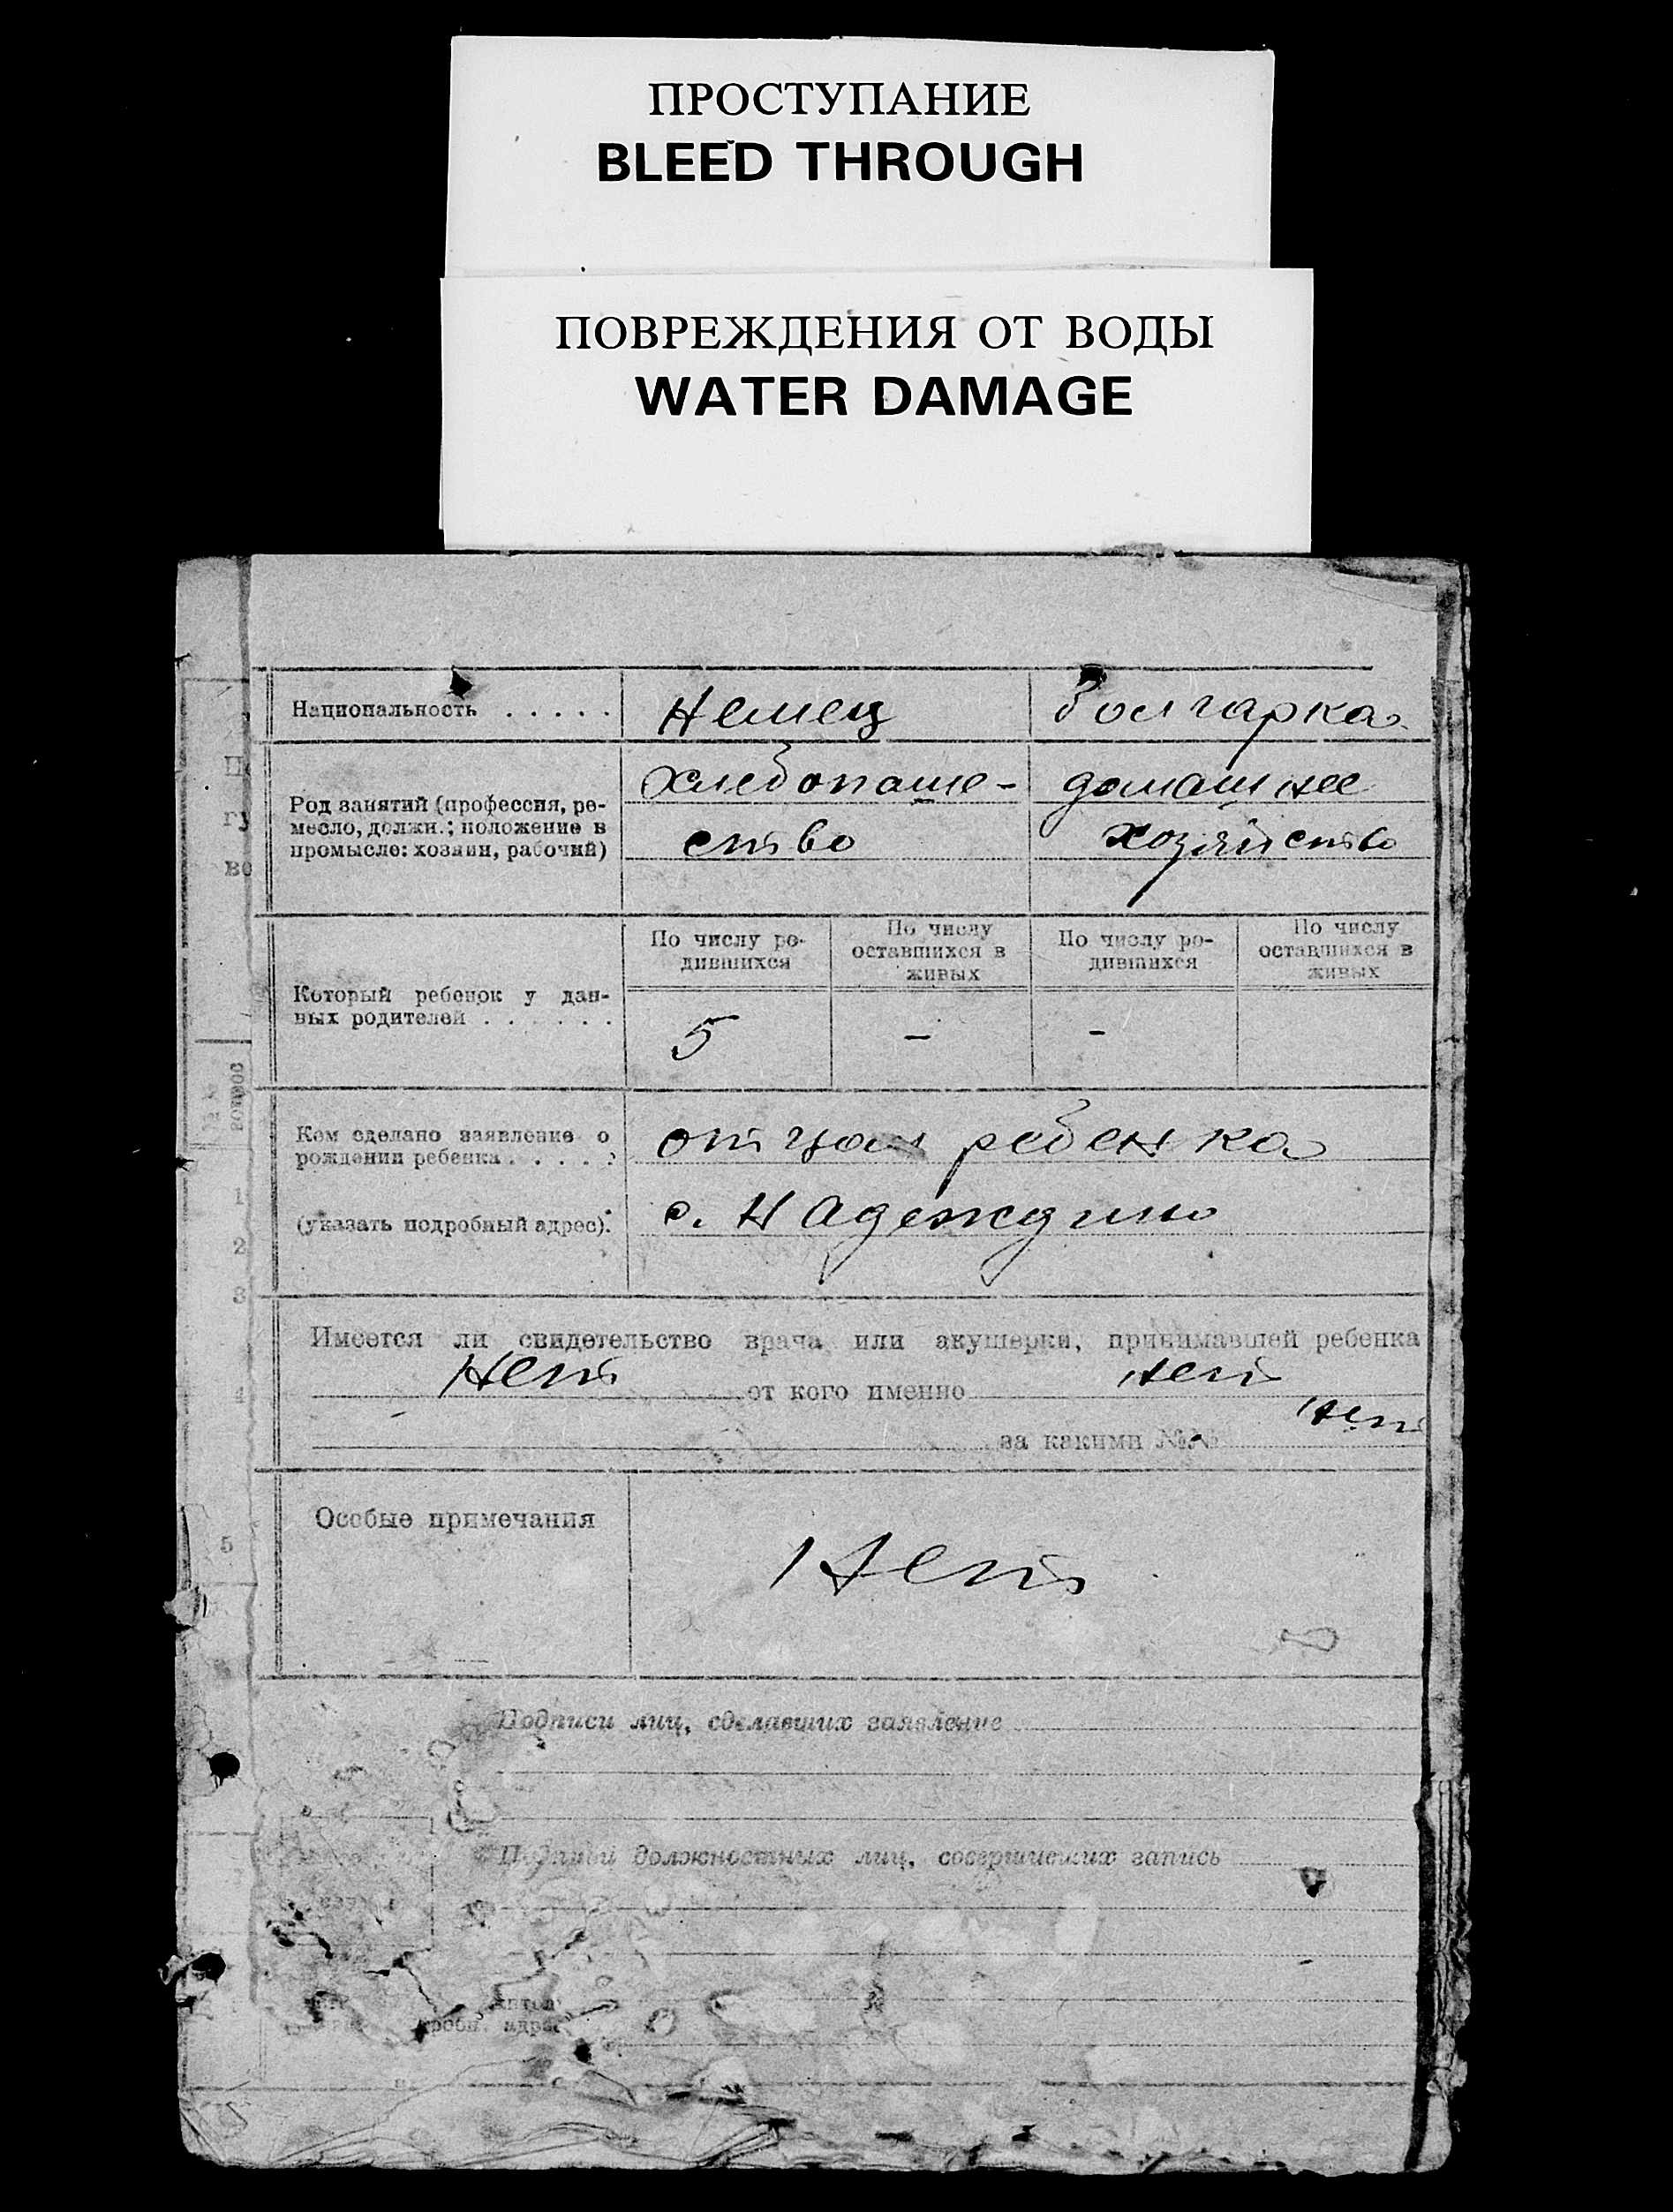 ПРОСТУПАНИЕ
BLEED THROUGH
ПОВРЕЖДЕНИЯ ОТ ВОДЫ
WATER DAMAGE
Национальность . . . . . Немец Болгарка
Род занятий (профессия, ре-
месло, должн.; положение в
промысле: хозяин, рабочий)
хлебопаше-
ство
домашнее
хозяйство
Который ребенок у дан-
ных родителей . . . . . .
По числу ро-
дившихся
По числу
оставшихся в
живых
По числу ро-
дившихся
По числу
оставшихся в
живых
5 - -
Кем сделано заявление о
рождении ребенка . . . . :
(указать подробный адрес).
отцом ребенка
с. Надеждино
Имеется ли свидетельство врача или акушерки, принимавшей ребенка
Нет от кого именно нет
за какими №№ нет
Особые примечания
Нет
Подписи лиц, сделавших заявление
Подписи должностных лиц, совершивших запись
вопрос
1
2
3
4
5